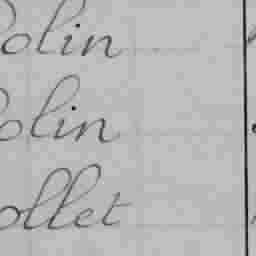 olin
olin
ollet